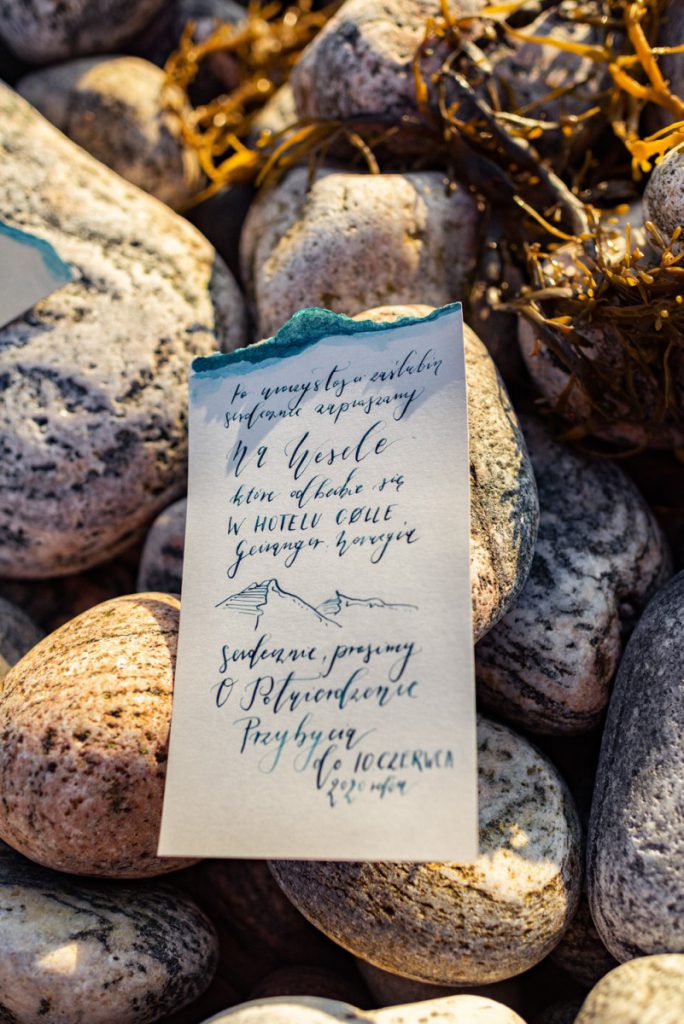 Po uroczystości zaślubin
serdecznie zapraszamy
Na Wesele
które odbędzie się
W HOTELU GØLLE
Geiranger, Norwegia
serdecznie, prosimy
O Potwierdzenie
Przybycia
do 10 CZERWCA
2020 roku